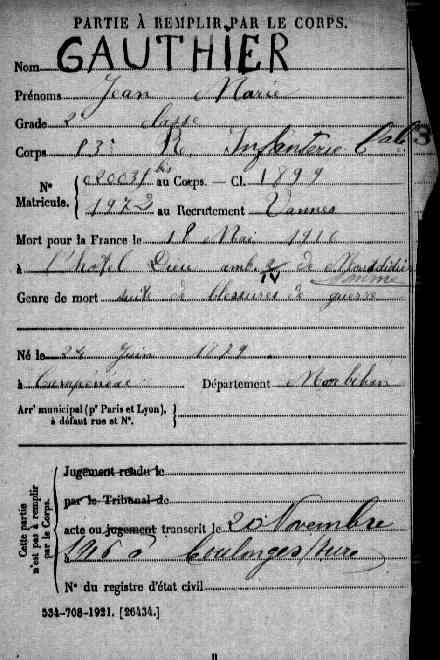 PARTIE À REMPLIR PAR LE CORPS.
Nom GAUTHIER
Prénoms Jean Marie
Grade 2e classe
Corps R. Infanterie Cale
Nos Matricule. au Corps. — Cl. 1899
1972 au Recrutement Vannes
Mort pour la France le 18 Mai 1916
à l'hotel Dieu amb. de Montdidier
Somme
Genre de mort suite de blessures de guerre
Né le 24 Juin 1879
à Campénéac Département Morbihan
Arrt municipal (pr Paris et Lyon),
à défaut rue et No.
Cette partie
n'est pas à remplir
par le Corps.
Jugement rendu le
par le Tribunal de
acte ou jugement transcrit le 20 Novembre
1916 à Coulonges
No du registre d'état civil
534-708-1921. [26434.]